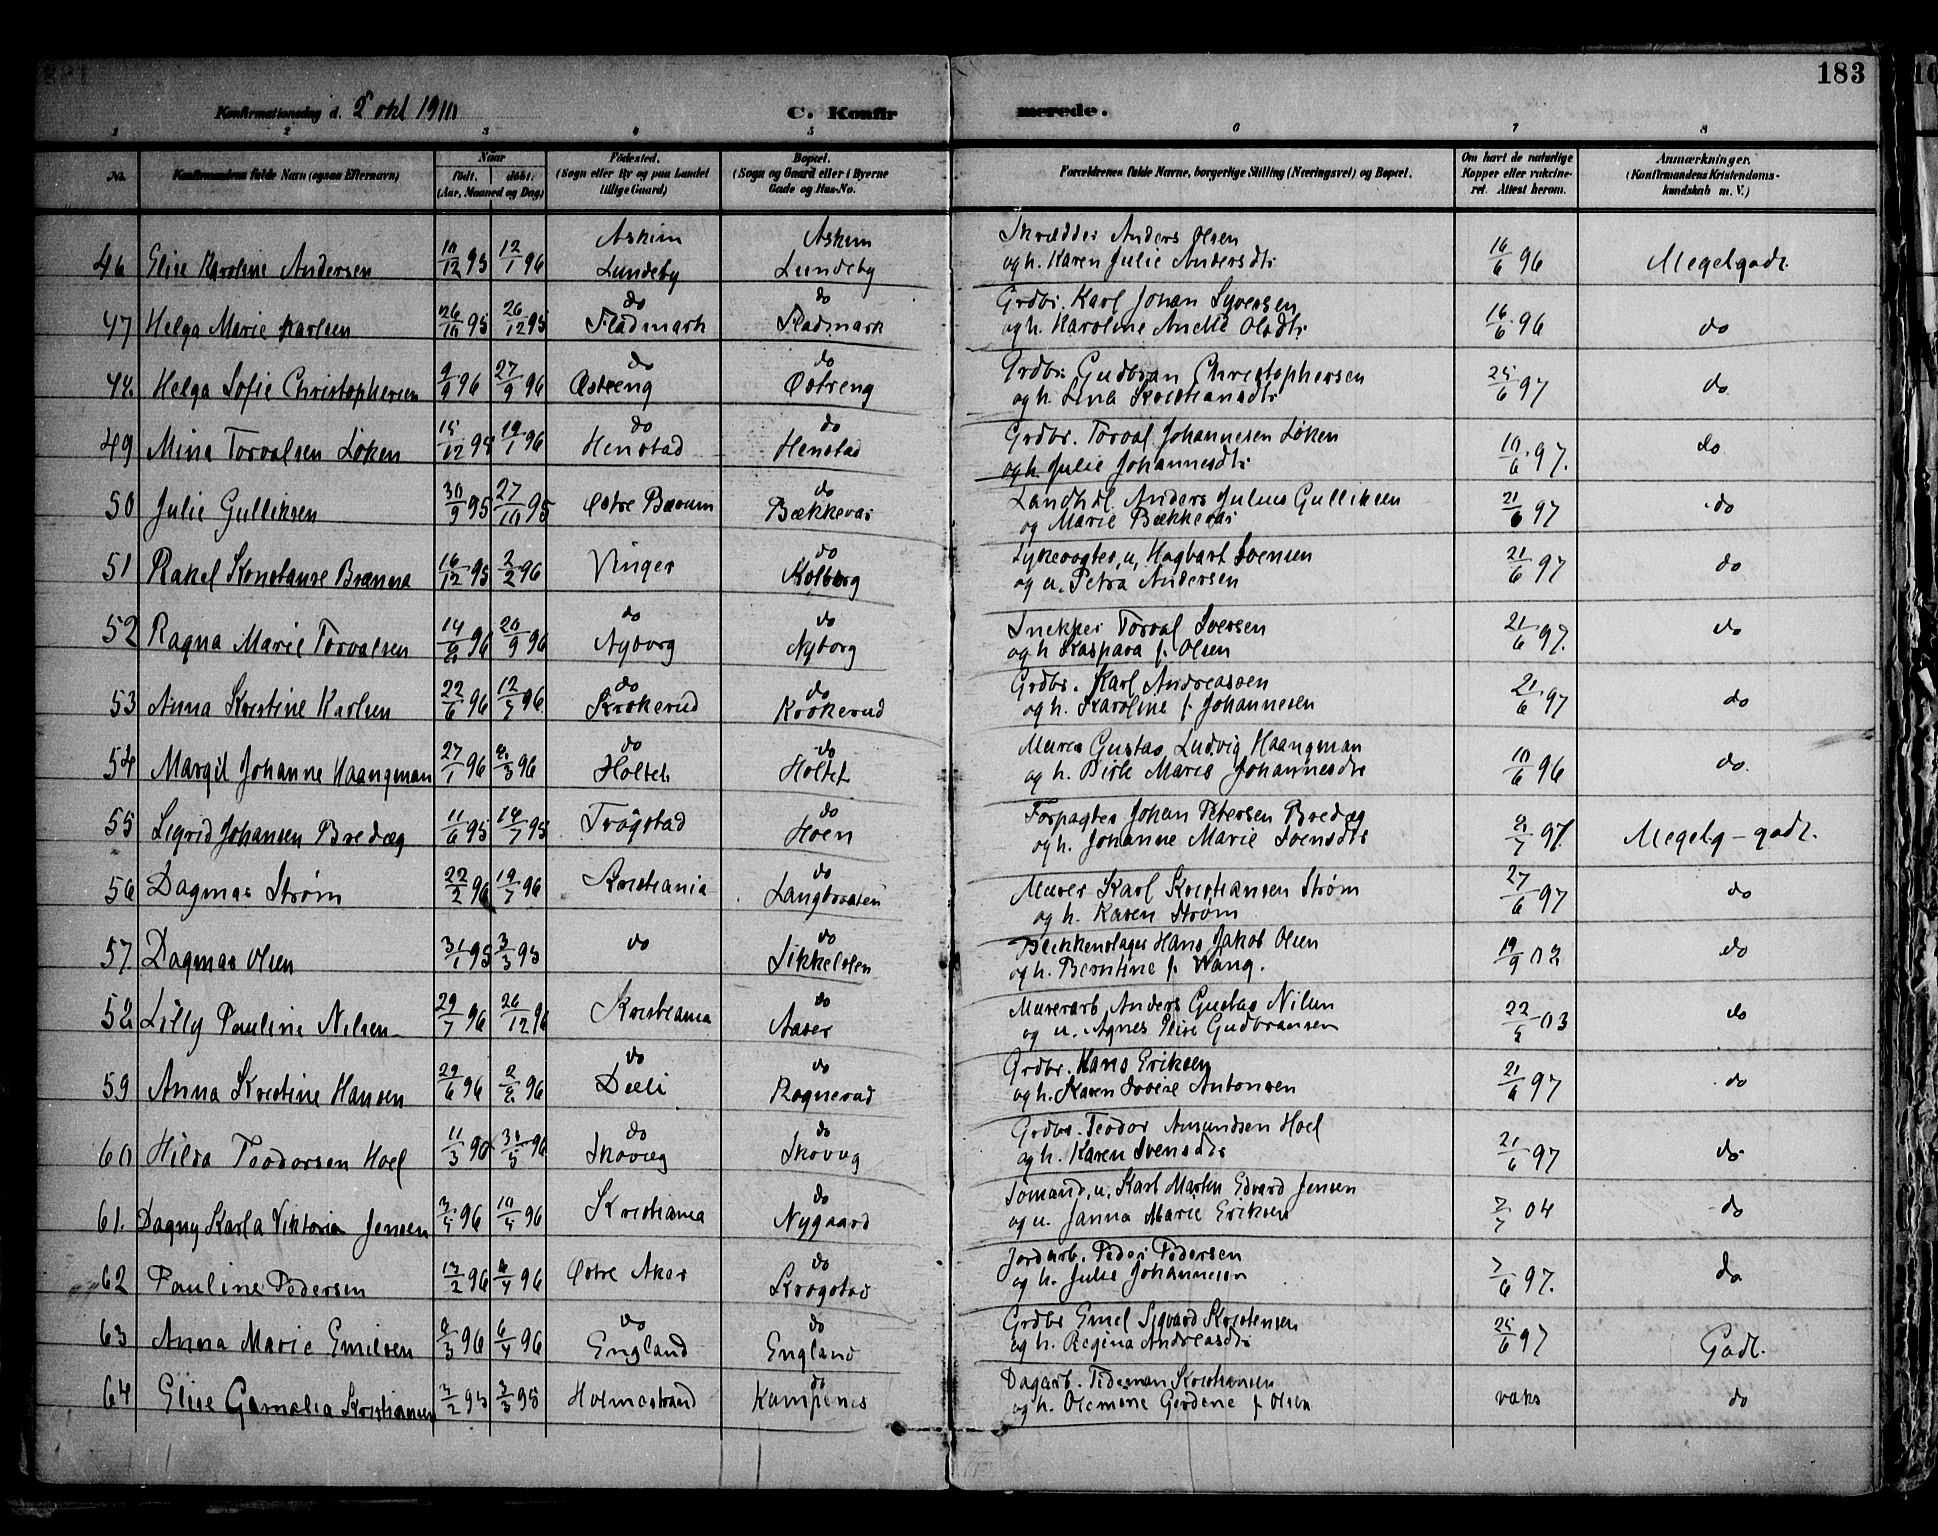 183
Konfirmationsdag d. 2 okt 1910
C. Konfirmerede.
1 2 3 4 5 6 7 8
No. Konfirmandens fulde Navn (ogsaa Efternavn) Naar født. døbt. (Aar, Maaned og Dag) Fødested. (Sogn eller By og paa Landet tillige Gaard) Bopæl. (Sogn og Gaard eller i Byerne Gade og Hus-No. Forældrenes fulde Navne, borgerlige Stilling (Næringsvei) og Bopæl. Om havt de naturlige Kopper eller vakcineret. Attest herom. Anmærkninger. (Konfirmandens Kristendomskundskab m. V.)
Askim Askim Skrædder Anders Olsen
46 Elise Karoline Andersen 10/12 95 12/1 96 Lundeby Lundeby og h. Karen Julie Andersdtr 16/6 96 Megetgodt.
do do Grdbr. Karl Johan Syversen
47 Helga Marie Karlsen 26/10 95 26/12 95 Fladmark Fladmark og h. Karoline Olsdtr 16/6 96 do
do do Grdbr. Gudbran Christophersen
48. Helga Sofie Christophersen 9/9 96 27/9 96 Østreng Østreng og h. Lina Kristiansdtr 25/6 97 do
do do Grdbr. Torval Johannesen Løken
49 Mina Torvalsen Løken 15/12 95 19/1 96 Henstad Henstad og h. Julie Johannesdtr 10/6 97. do
do Landhdl. Anders Julius Gulliksen
50 Julie Gulliksen 30/9 95 27/10 95 Østre Bærum Bækkevar og Marie Bækkevar 21/6 97 do
do Sykevogter, u, Hagbart Svensen
51 Rakel Konstanse Branna 16/12 95 2/2 96 Vinger Kolborg og u. Petra Andersen 21/6 97 do
do do Snekker Torval Iversen
52 Ragna Marie Torvalsen 14/8 96 20/9 96 Nyborg Nyborg og h Kaspara f. Olsen 21/6 97. do
do do Grdbr. Karl Andreassen
53 Anna Kristine Karlsen 22/6 96 12/7 96 Krokerud Krokerud og h. Karoline f. Johannesen 21/6 97 do
do do Murer Gustav Ludvig Haangman
54 Margit Johanne Haangman 27/1 96 8/3 96 Holtet Holtet og h. Marie Johannesdtr 10/6 96 do.
do Forpagter Johan Petersen Bredæg
55 Sigrid Johansen Bredæg 11/6 95 14/7 95 Trøgstad Hoen og h. Johanne Marie Svensdtr 2/7 97. Megetg-godt.
do Murer Karl Kristiansen Strøm
56 Dagmar Strøm 22/2 96 19/7 96 Kristiania Langbraaten og h. Karen Strøm 27/6 97 do
do Blikkenslager Hans Jakob Olsen
57 Dagmar Olsen 31/1 95 3/3 95 do Sikkelsten og h. Berntine f. Wang. 19/9 02 do
do Murerarb Anders Gustav Nilsen
58 Lilly Pauline Nilsen 29/7 96 26/12 96 Kristiania Aaser og u. Agnes Elise Gudbransen 22/5 03 do
do do Grdbr. Hans Eriksen
59 Anna Kristine Hansen 29/6 96 2/8 96 Dæli Rognerud og h. Karen Lovise Antonsen 21/6 97 do
do do Grdbr. Teodor Amundsen Hoel
60 Hilda Teodorsen Hoel 11/3 96 31/5 96 Skovæg Skovæg og h. Karen Svensdtr 21/6 97 do
do Sømand, u. Karl Martin Edvard Jensen
61. Dagny Karla Viktoria Jensen 3/4 96 10/4 96 Kristiania Nygaard og u. Janna Marie Eriksen 7/7 04 do
do Jordarb. Peder Pedersen
62 Pauline Pedersen 13/2 96 4/4 96 Østre Aker Krogstad og h. Julie Johannesen 7/6 97. do
do do Grdbr Emil Sigvard Kristensen
63 Anna Marie Emilsen 8/3 96 6/4 96 England England og h. Regina Andreasdtr 25/6 97 Godt.
do Dagarb. Tideman Kristiansen
64 Elise Gamalia Kristiansen 3/2 95 3/3 95 Holmestrand Kampenes og h. Olemine Gerdene f Olsen vaks do